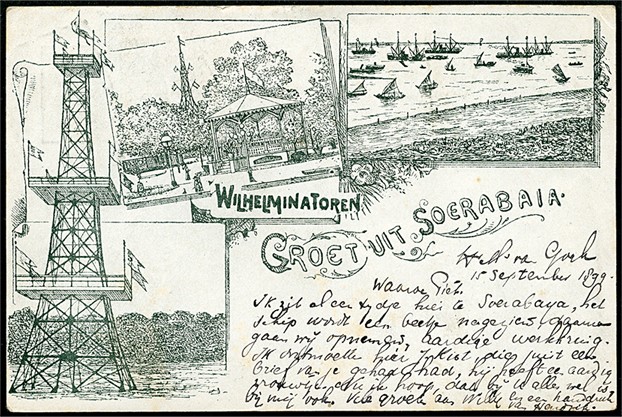 WILHELMINATOREN
GROET UIT SOERABAIA.
15 September 1899.
Waarde Piet.
Ik zit al een tydje hier te Soerabaya, het
schip wordt een beetje nagezien, daarna
gaan wij opnemen, aardige werkkring.
Ik ontmoette hier juist een
brief van je gehad had, hij heeft een aardig
vrouwtje. hoop, dat bij U alles wel is
bij mij ook. Vele groeten aan en een handdruk
van